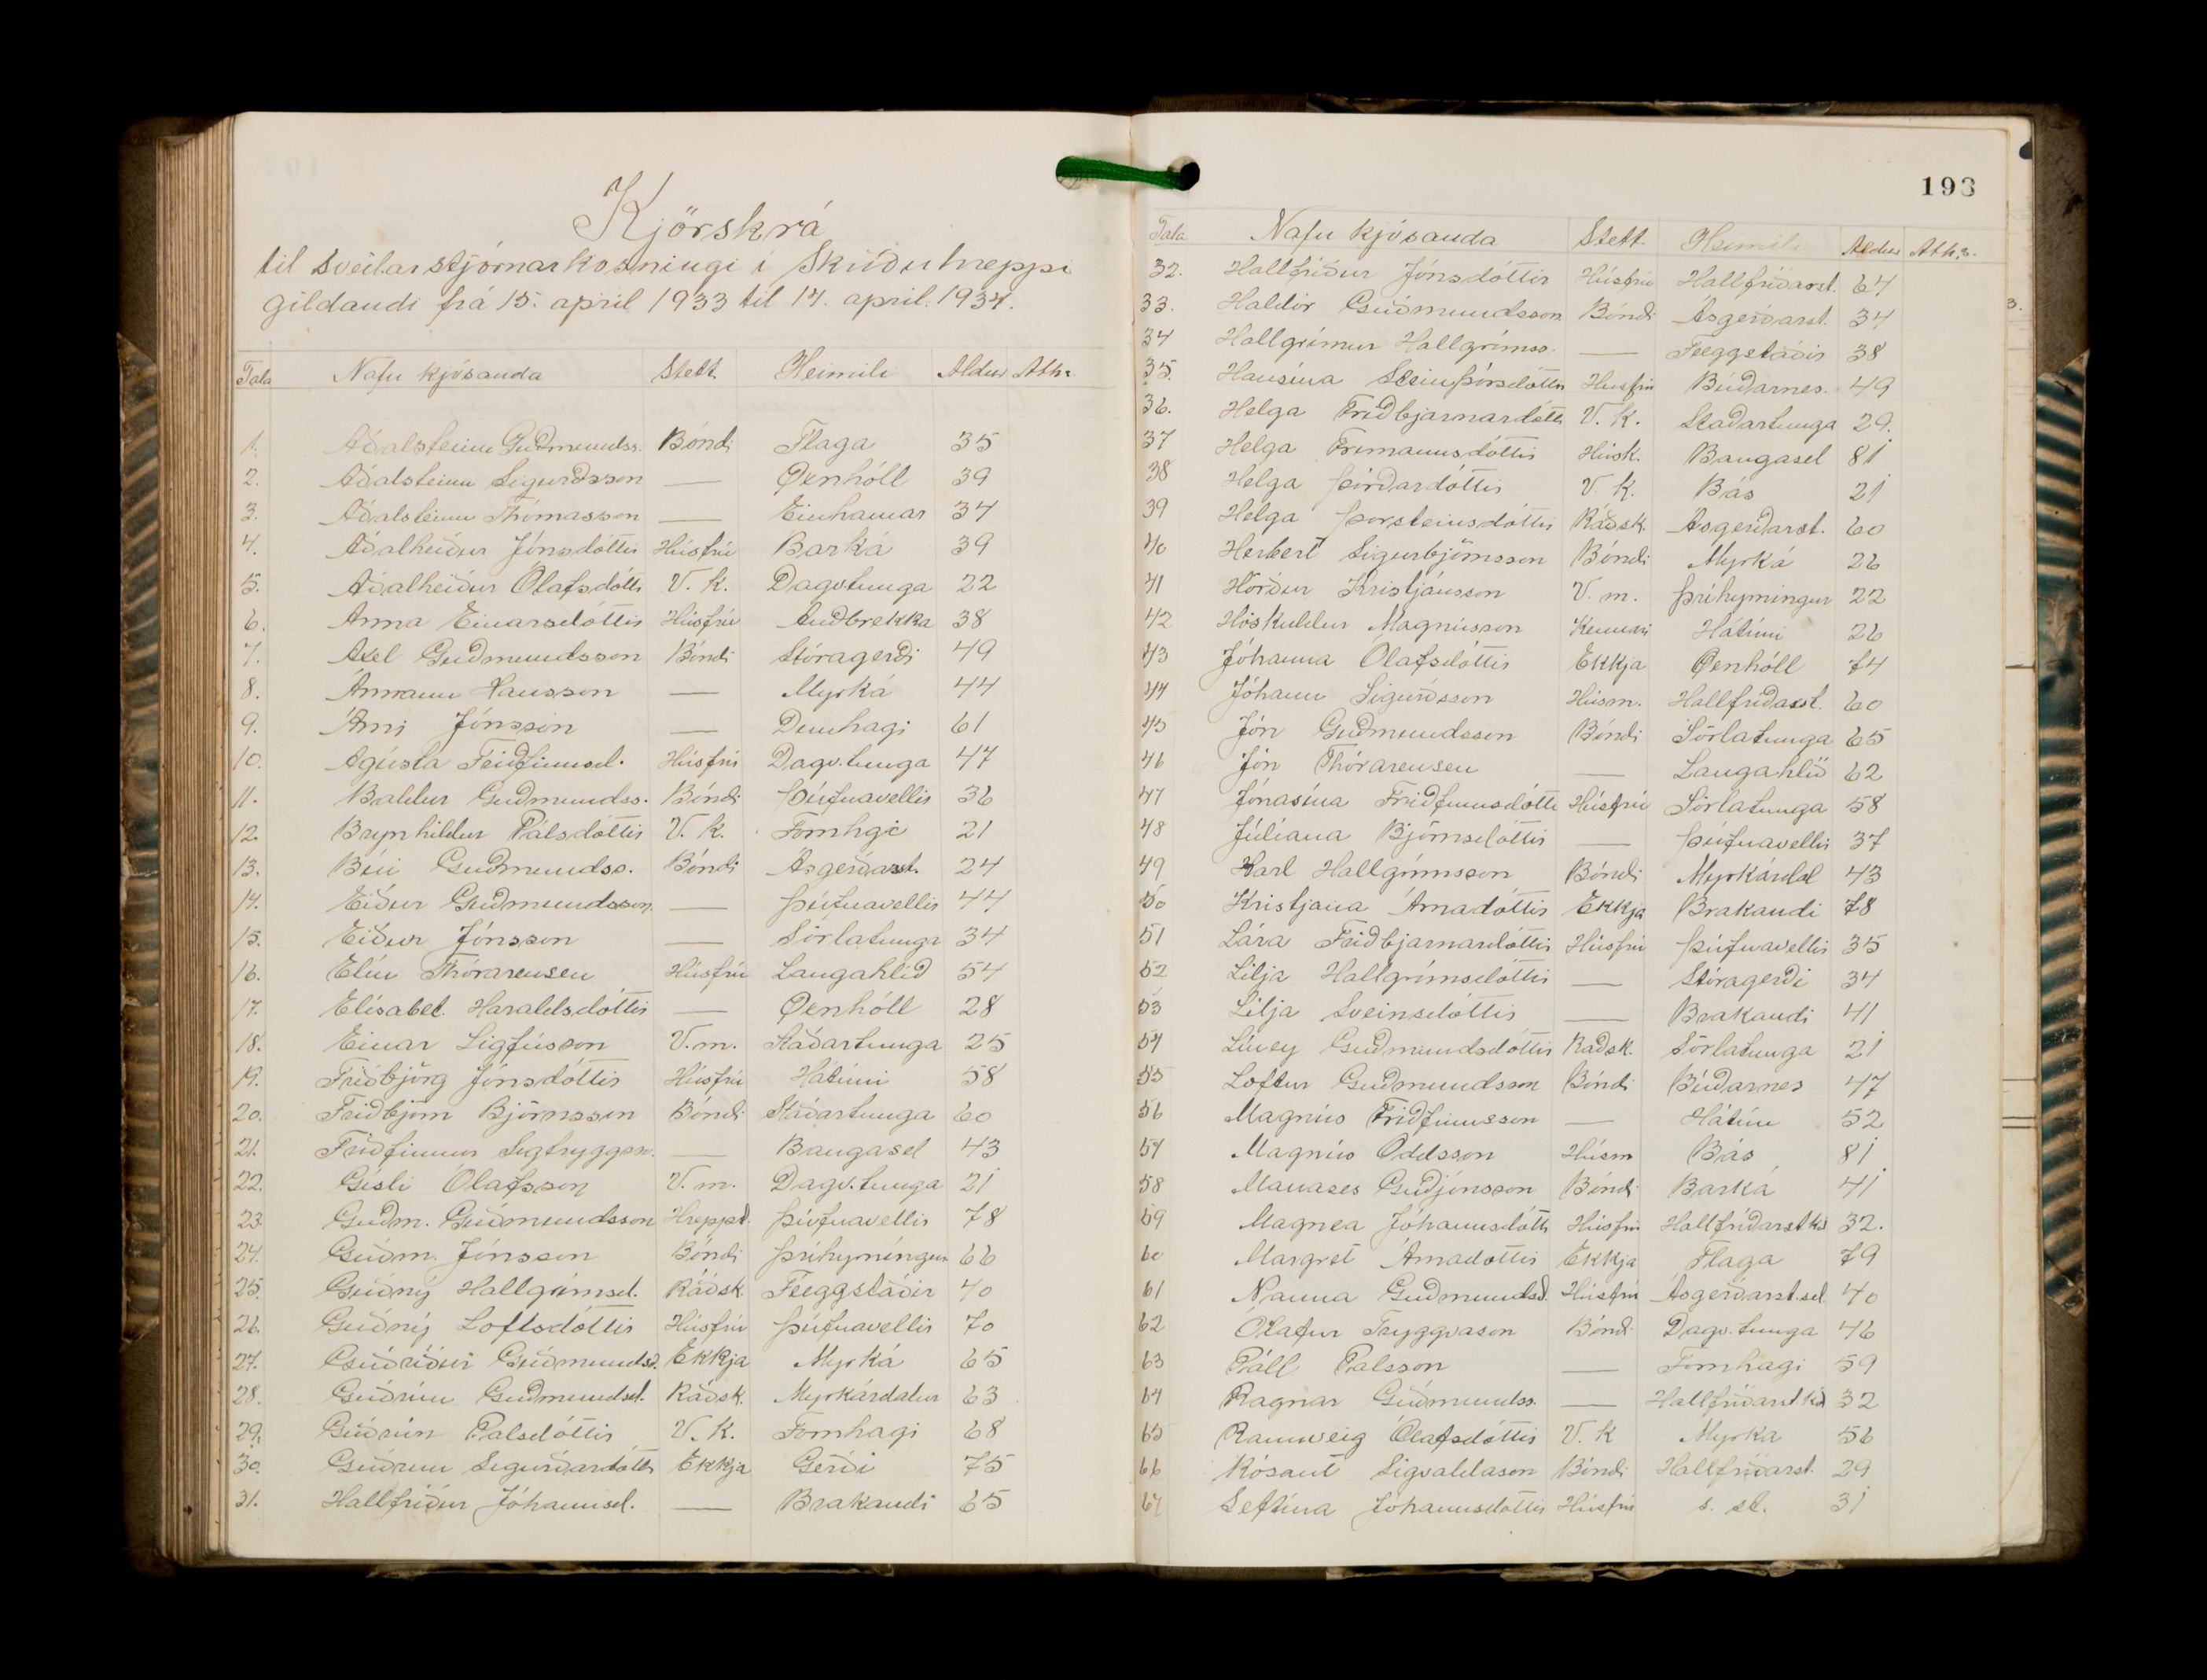 Kjörskrá
til sveitarstjórnarkosningi í Skriðuhreppi
gildandi frá 15. april 1933 til 14. april. 1934.
Tala Nafn kjósanda Stett. Heimili Aldur Ath.
1. Aðalsteinn Guðmundss. Bóndi Flaga 35
2. Aðalsteinn Sigurðsson — Öxnhóll 39
3. Aðalsteinn Thómasson — Einhamar 34
4. Aðalheiður Jónsdóttir Húsfrú Barká 39
5. Aðalheiður Ólafsdóttir V. k. Dagv.tunga 22
6. Anna Einarsdóttir Húsfrú Auðbrekka 38
7. Axel Guðmundsson Bóndi Stóragerði 49
8. Ármann Hansson — Myrká 44
9. Árni Jónsson — Dunhagi 61
10. Agústa Friðfinnsd. Húsfrú Dagv.tunga 47
11. Baldur Guðmundss. Bóndi Þúfnavellir 36
12. Brynhildur Pálsdóttir V. k. Fornhgi 21
13. Búi Guðmundss. Bóndi Ásgerðarst. 24
14. Eiður Guðmundsson. — Þúfnavellir 44
15. Eiður Jónsson — Sörlatunga 34
16. Elín Thórarensen Húsfrú Langahlíð 54
17. Elísabet Haraldsdóttir — Öxnhóll 28
18. Einar Sigfússon V. m. Staðartunga 25
19. Friðbjörg Jónsdóttir Húsfrú Hátúni 58
20. Friðbjörn Björnsson Bóndi Staðartunga 60
21. Friðfinnur Sigtryggsson. — Baugasel 43
22. Gísli Ólafsson V. m. Dagv.tunga 21
23. Guðm. Guðmundsson Hreppst. Þúfnavellir 78
24. Guðm. Jónsson Bóndi Þríhyrningur 66
25. Guðný Hallgrímsd. Ráðsk. Féeggstaðir 40
26. Guðný Loftsdóttir Húsfrú Þúfnavellir 70
27. Guðríður Guðmundsd. Ekkja Myrká 65
28. Guðrún Guðmundsd. Ráðsk. Myrkárdalur 63
29. Guðrún Palsdóttir V. k. Fornhagi 68
30. Guðrún Sigurðardóttir Ekkja Gerði 75
31. Hallfríður Jóhannsd. — Brakandi 65
193
Tala Nafn kjósanda Stett. Heimili Aldur Ath.s.
32. Hallfríður Jónsdóttir Húsfrú Hallfríðarst. 64
33. Haldór Guðmundsson Bóndi Ásgerðarst. 34
34 Hallgrímur Hallgrímss. — Féeggstaðir 38
35. Hansína Steinþórsdóttir Húsfrú Búðarnes. 49
36. Helga Friðbjarnardóttir V. k. Staðartunga 29.
37 Helga Frímannsdóttir Húsk. Baugasel 81
38 Helga Þórðardóttir V. k. Bás 21
39 Helga Þorsteinsdóttir Ráðsk. Asgerðarst. 60
40 Herbert Sigurbjörnsson Bóndi Myrká 26
41 Hörður Kristjánsson V. m. Þríhyrningur 22
42 Höskuldur Magnússon Kennari Hátúni 26
43 Jóhanna Ólafsdóttir Ekkja Öxnhóll 74
44 Jóhann Sigurðsson Húsm. Hallfríðarst. 60
45 Jón Guðmundsson Bóndi Sörlatunga 65
46 Jón Thórarensen — Langahlíð 62
47 Jónasína Friðfinnsdóttir Húsfrú Sörlatunga 58
48 Júlíana Björnsdóttir — Þúfnavellir 37
49 Karl Hallgrímsson Bóndi Myrkárdal 43
50 Kristjana Árnadóttir Ekkja Brakandi 78
51 Lára Friðbjarnardóttir Húsfrú Þúfnavellir 35
52 Lilja Hallgrímsdóttir — Stóragerði 34
53 Lilja Sveinsdóttir — Brakandi 41
54 Líney Guðmundsdóttir Raðsk. Sörlatunga 21
55 Loftur Guðmundsson Bóndi Búðarnes 47
56 Magnús Friðfinnsson — Hátún 52
57 Magnús Oddsson Húsm Bás 81
58 Manases Guðjónsson Bóndi Barká 41
59 Magnea Jóhannsdóttir Húsfrú Hallfríðarst.k. 32.
60 Margret Árnadóttir Ekkja Flaga 79
61 Nanna Guðmundsd. Húsfrú Ásgerðarst.sel 40
62 Ólafur Tryggvason Bóndi Dagv.tunga 46
63 Páll Palsson — Fornhagi 59
64 Ragnar Guðmundss. — Hallfríðarst.k. 32
65 Rannveig Ólafsdóttir V. k Myrka 56
66 Rósant Sigvaldason Bóndi Hallfríðarst. 29
67 Septína Jóhannsdóttir Húsfrú s. st. 31
3.